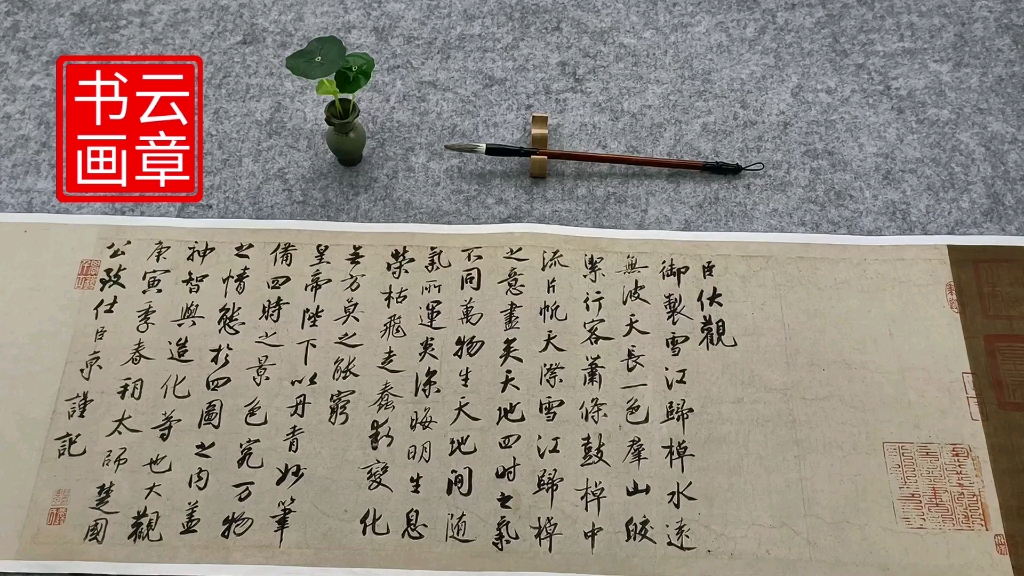 云章
书画
臣伏觀
御製雪江歸棹水遠
無波天長一色羣山皎
潔行客蕭條鼓棹中
流片帆天際雪江歸棹
之意盡矣天地四时之氣
不同萬物生天地間随
氣所運炎涼晦明生息
榮枯飛走蠢動變化
無方莫之能窮
皇帝陛下以丹青妙筆
備四時之景色究万物
之情態於四圖之内蓋
神智與造化等也大觀
庚寅季春朔太師楚國
公致仕臣京謹記